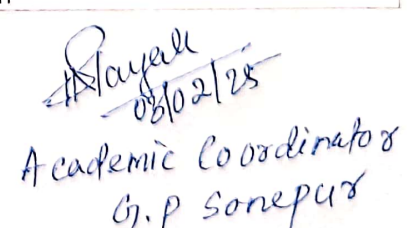 03/02/25
Academic Coordinator
G.P Sonepur